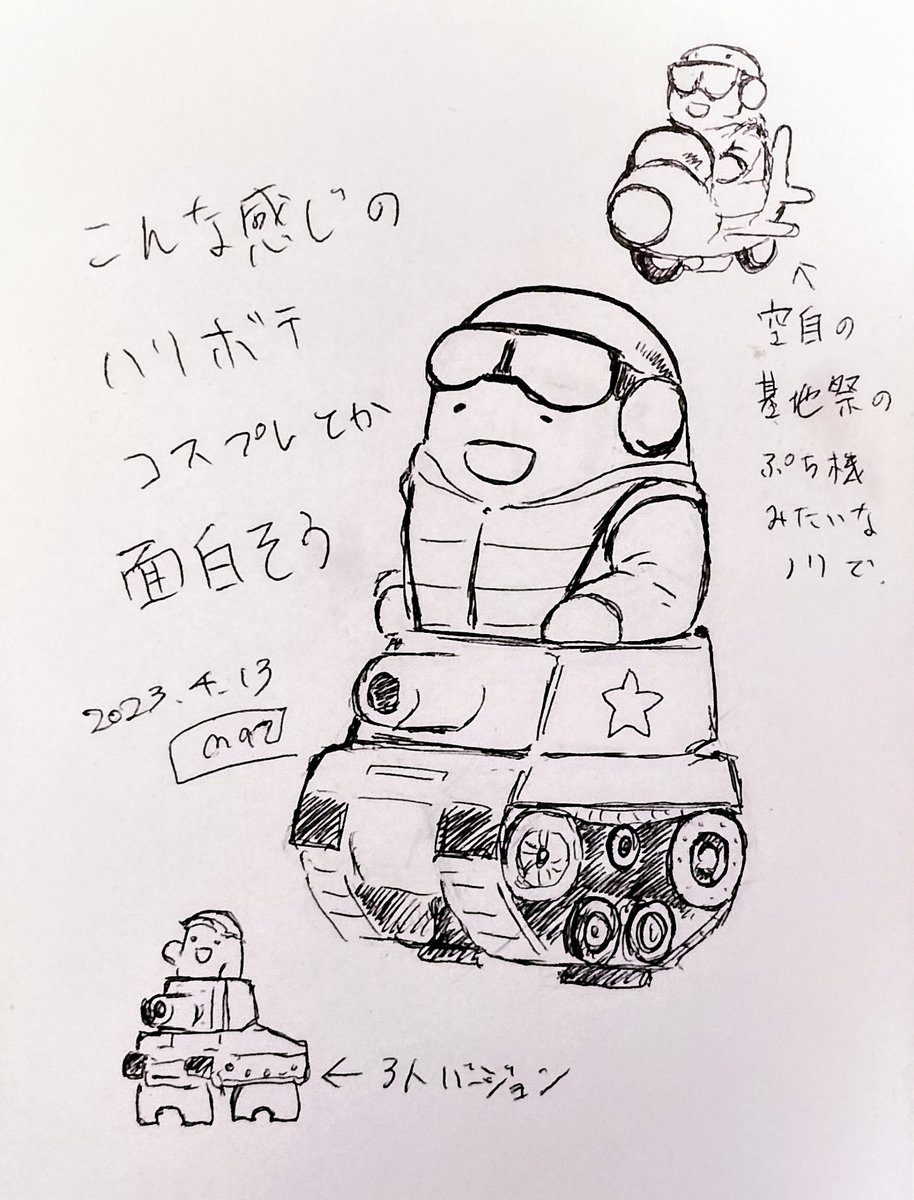 こんな感じの
ハリボテ
コスプレとか
面白そう
2023.4.13
↑
空自の
基地祭の
ぷち機
みたいな
ノリで.
← 3人バージョン